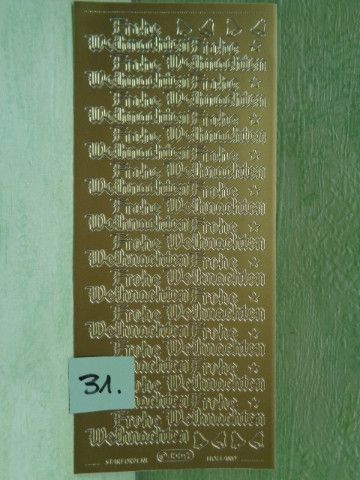 Frohe
Weihnachten Frohe
Frohe Weihnachten
Weihnachten Frohe
Frohe Weihnachten
Weihnachten Frohe
Frohe Weihnachten
Weihnachten Frohe
Frohe Weihnachten
Weihnachten Frohe
Frohe Weihnachten
Weihnachten Frohe
Frohe Weihnachten
Weihnachten Frohe
Frohe Weihnachten
Weihnachten Frohe
Frohe Weihnachten
Weihnachten Frohe
Frohe Weihnachten
Weihnachten Frohe
31.
Frohe Weihnachten
Weihnachten Frohe
Frohe Weihnachten
Weihnachten
HOLLAND